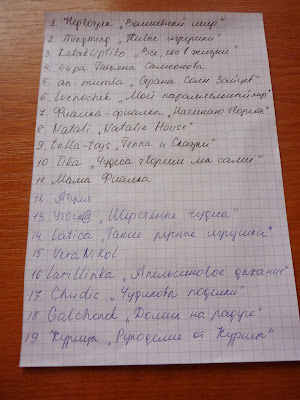 1. Нервозик „Волшебный мир"
2. Tinyminy „Живые игрушки"
3. Katabliptiko „Все, что в жизни"
4. Лира Татьяна Самсонова
5. an-mimba „Страна Соен Зайцев"
6. Lvenochik „Мой параллельный мир"
7. Фиалка-фиалка „Начинаю творить"
8. Natali „Natalie House"
9. tella-toys „Тепла и Сказки"
10. Tika „Чудеса творим мы сами"
11. Мама Фиалка
12.
13. „Шерстяные чудеса"
14. Latica „Такие разные игрушки"
15 Vera Nikol
16 Larillinka „Апельсиновое дыхание"
17 Chudic „Чудикова подошки"
18 Galchend „Домик на радуге"
19 Курица „Рукоделие от Курицы"